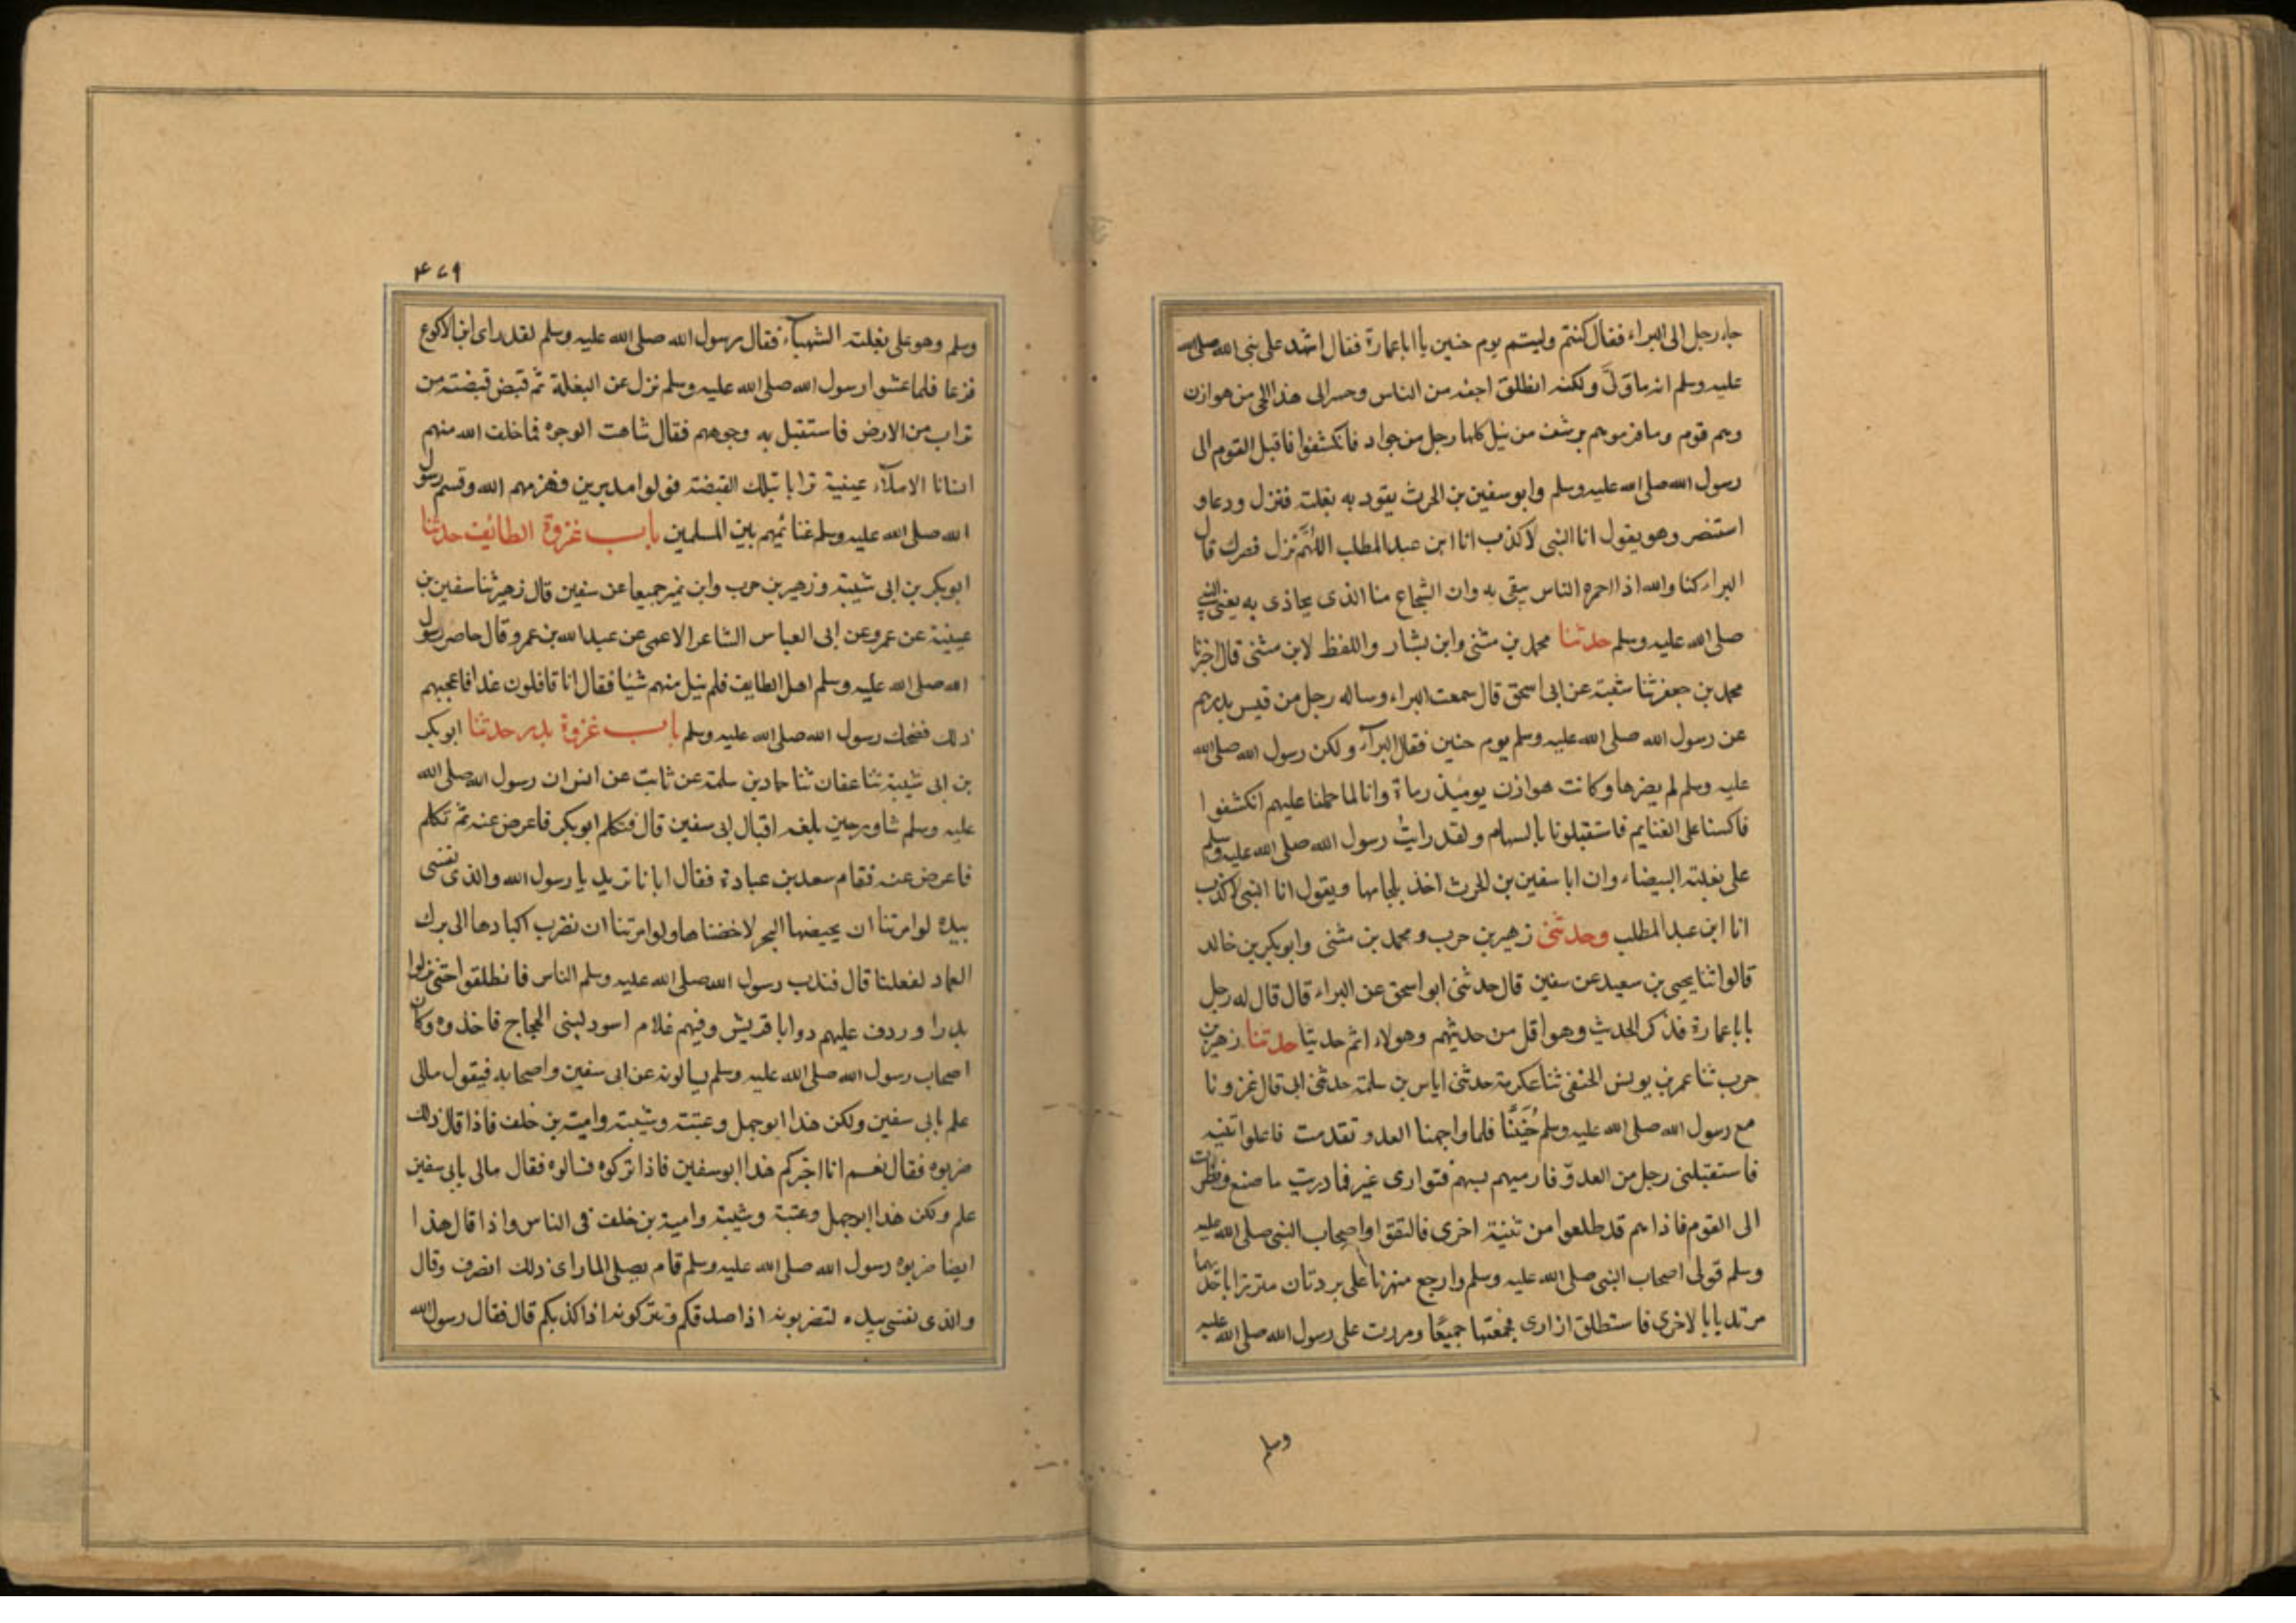 جاء رجل الى البراء فقال كنتم وليتم يوم حنين يا اباعمارة فقال اشهد على نبى الله صلى الله
عليه وسلم انه ما ولّى ولكنه انطلق اخفه من الناس وحسر الى هذا الحى من هوازن
وهم قوم رماة فرموهم برشق من نبل كانها رجل من جراد فانكشفوا فاقبل القوم الى
رسول الله صلى الله عليه وسلم وابوسفين بن الحرث يقود به بغلته فنزل ودعا و
استنصر وهو يقول انا النبى لاكذب انا ابن عبد المطلب اللهم نزل نصرك قال
البراء كنا والله اذا احمر الناس يتقى به وان الشجاع منا الذى يحاذى به يعنى النبى
صلى الله عليه وسلم حدثنا محمد بن مثنى وابن بشار واللفظ لابن مثنى قال اخبرنا
محمد بن جعفر ثنا شعبة عن ابى اسحق قال سمعت البراء وساله رجل من قيس
عن رسول الله صلى الله عليه وسلم يوم حنين فقال البرآء ولكن رسول الله صلى الله
عليه وسلم لم يفر وكانت هوازن يومئذ رماة وانا لما حملنا عليهم انكشفوا
فاكببنا على الغنايم فاستقبلونا بالسهام ولقد رايت رسول الله صلى الله عليه وسلم
على بغلته البيضاء وان اباسفين بن الحرث اخذ بلجامها ويقول انا النبى لاكذب
انا ابن عبد المطلب وحدثنى زهير بن حرب ومحمد بن مثنى وابوبكر بن خالد
قالوا ثنا يحيى بن سعيد عن سفين قال حدثنى ابواسحق عن البراء قال قال له رجل
يا باعمارة فذكر الحديث وهو اقل من حديثهم وهولاء اتم حديثا حدثنا زهير بن
حرب ثنا عمر بن يونس الحنفى ثنا عكرمة حدثنى اياس بن سلمة حدثنى ابى قال غزونا
مع رسول الله صلى الله عليه وسلم حُنَينًا فلما واجهنا العدو تقدمت فاعلوا ثنية
فاستقبلنى رجل من العدوّ فارميهم بسهم فتوارى عنى فما دريت ما صنع ونظرت
الى القوم فاذاهم قد طلعوا من ثنية اخرى فالتقوا واصحاب النبى صلى الله عليه
وسلم فولى اصحاب النبى صلى الله عليه وسلم وارجع منهزما على بردتان متزرا باحديهما
مرتديا بالاخرى فاستطلق ازارى فجمعتها جميعًا ومررت على رسول الله صلى الله عليه
وسلم
۴۷۹
وسلم وهو على بغلته الشهبآء فقال رسول الله صلى الله عليه وسلم لقد راى ابن الاكوع
فزعا فلما غشوا رسول الله صلى الله عليه وسلم نزل عن البغلة ثم قبض قبضة من
تراب من الارض فاستقبل به وجوههم فقال شاهت الوجوه فما خلق الله منهم
انسانا الا ملآء عينية ترابا بتلك القبضة فولوا مدبرين فهزمهم الله وقسم رسول
الله صلى الله عليه وسلم غنائمهم بين المسلمين باب غزوة الطائيف حدثنا
ابوبكر بن ابى شيبة وزهير بن حرب وابن نمير جميعا عن سفين قال زهير ثنا سفين بن
عيينة عن عمرو عن ابى العباس الشاعر الاعمى عن عبد الله بن عمرو قال حاصر رسول
الله صلى الله عليه وسلم اهل الطايف فلم ينل منهم شيئا فقال انا قافلون غدا فاعجبهم
ذلك فضحك رسول الله صلى الله عليه وسلم باب غزوة بدر حدثنا ابوبكر
بن ابى شيبة ثنا عفان ثنا حماد بن سلمة عن ثابت عن انس ان رسول الله صلى الله
عليه وسلم شاور حين بلغه اقبال ابى سفين قال فتكلم ابوبكر فاعرض عنه ثم تكلم
فاعرض عنه فقام سعد بن عبادة فقال ايانا تريد يا رسول الله والذى نفسى
بيده لوامرتنا ان نخيضها البحر لاخضناها ولوامرتنا ان نضرب اكبادها الى برك
الغماد لفعلنا قال فندب رسول الله صلى الله عليه وسلم الناس فانطلقوا حتى نزلوا
بدرا ووردت عليهم روايا قريش وفيهم غلام اسود لبنى الحجاج فاخذوه وكان
اصحاب رسول الله صلى الله عليه وسلم يسالونه عن ابى سفين واصحابه فيقول مالى
علم بابى سفين ولكن هذا ابوجهل وعتبة وشيبة وامية بن خلف فاذا قال ذلك
ضربوه فقال نعم انا اخبركم هذا ابوسفين فاذا تركوه فسالوه فقال مالى بابى سفين
علم ولكن هذا ابوجهل وعتبة وشيبة وامية بن خلف فى الناس واذا قال هذا
ايضا ضربوه رسول الله صلى الله عليه وسلم قام يصلى فلما راى ذلك انصرف وقال
والذى نفسى بيده لتضربونه اذا صدقكم وتتركونه اذا كذبكم قال فقال رسول الله